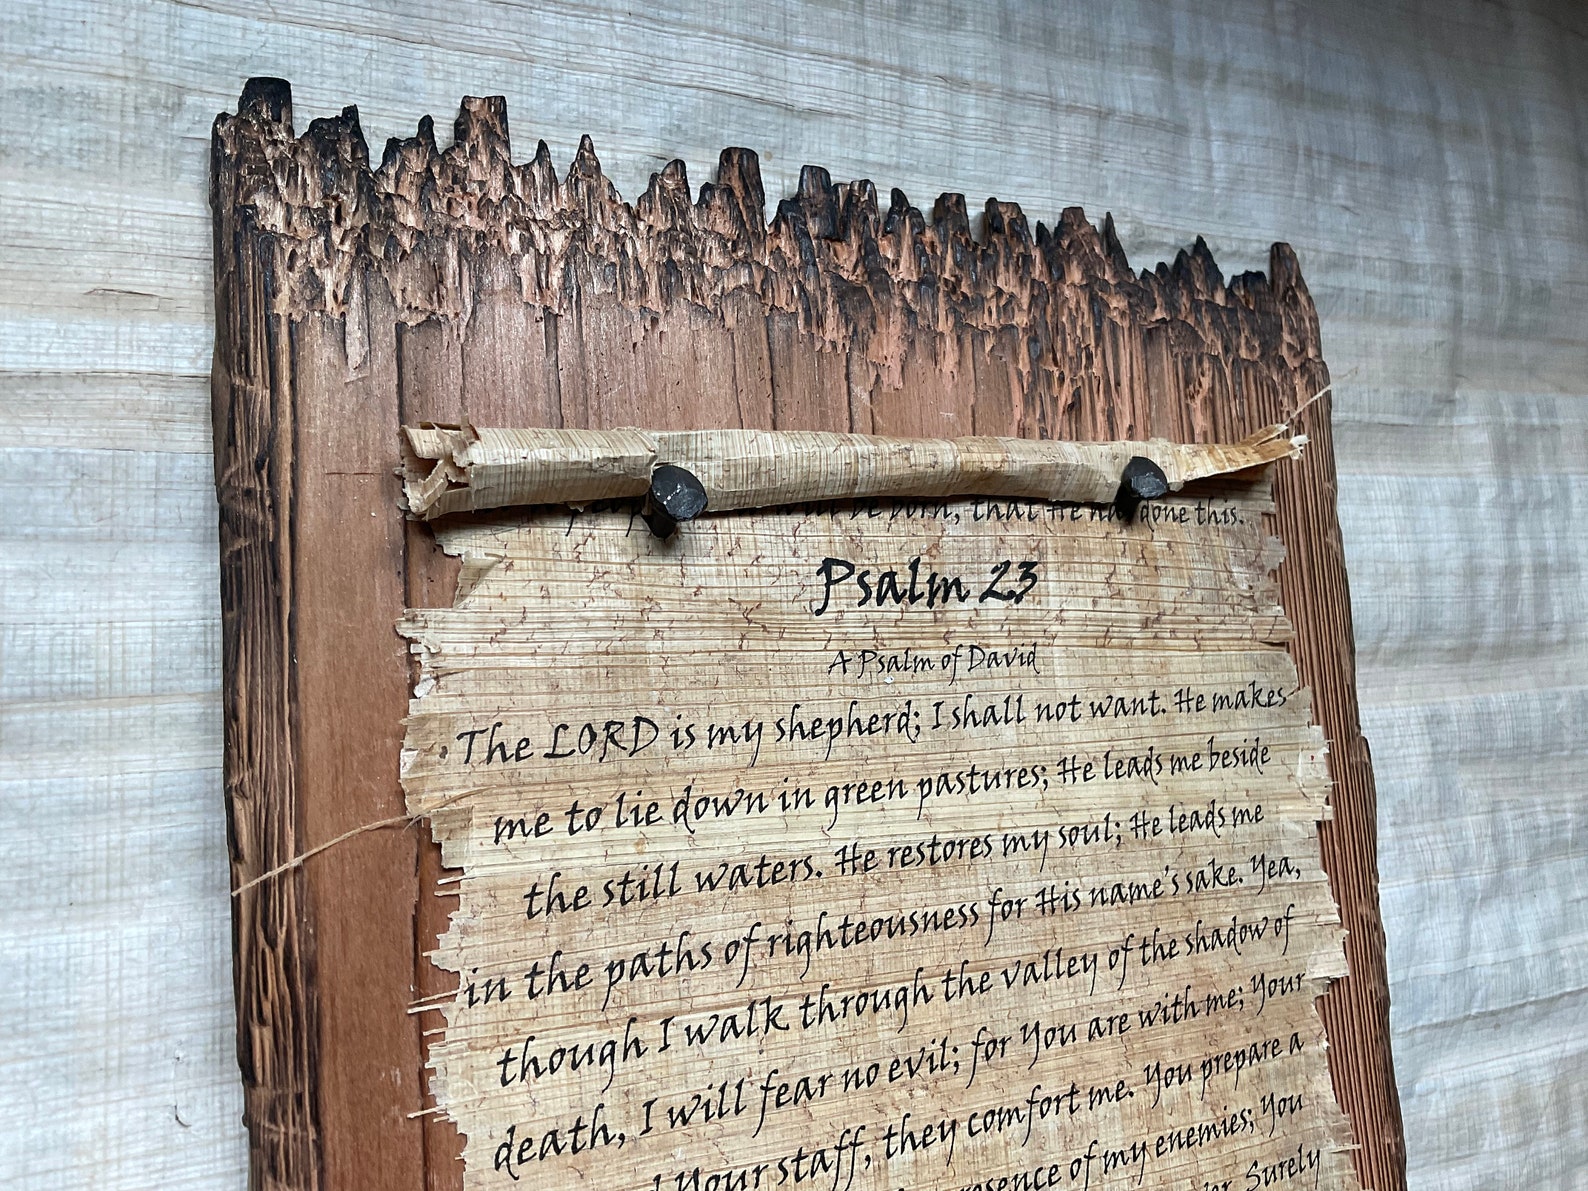 be born, that He has done this.
Psalm 23
A Psalm of David
The LORD is my shepherd; I shall not want. He makes
me to lie down in green pastures; He leads me beside
the still waters. He restores my soul; He leads me
in the paths of righteousness for His name's sake. Yea,
though I walk through the valley of the shadow of
death, I will fear no evil; for You are with me; Your
Your staff, they comfort me. You prepare a
presence of my enemies; You
Surely